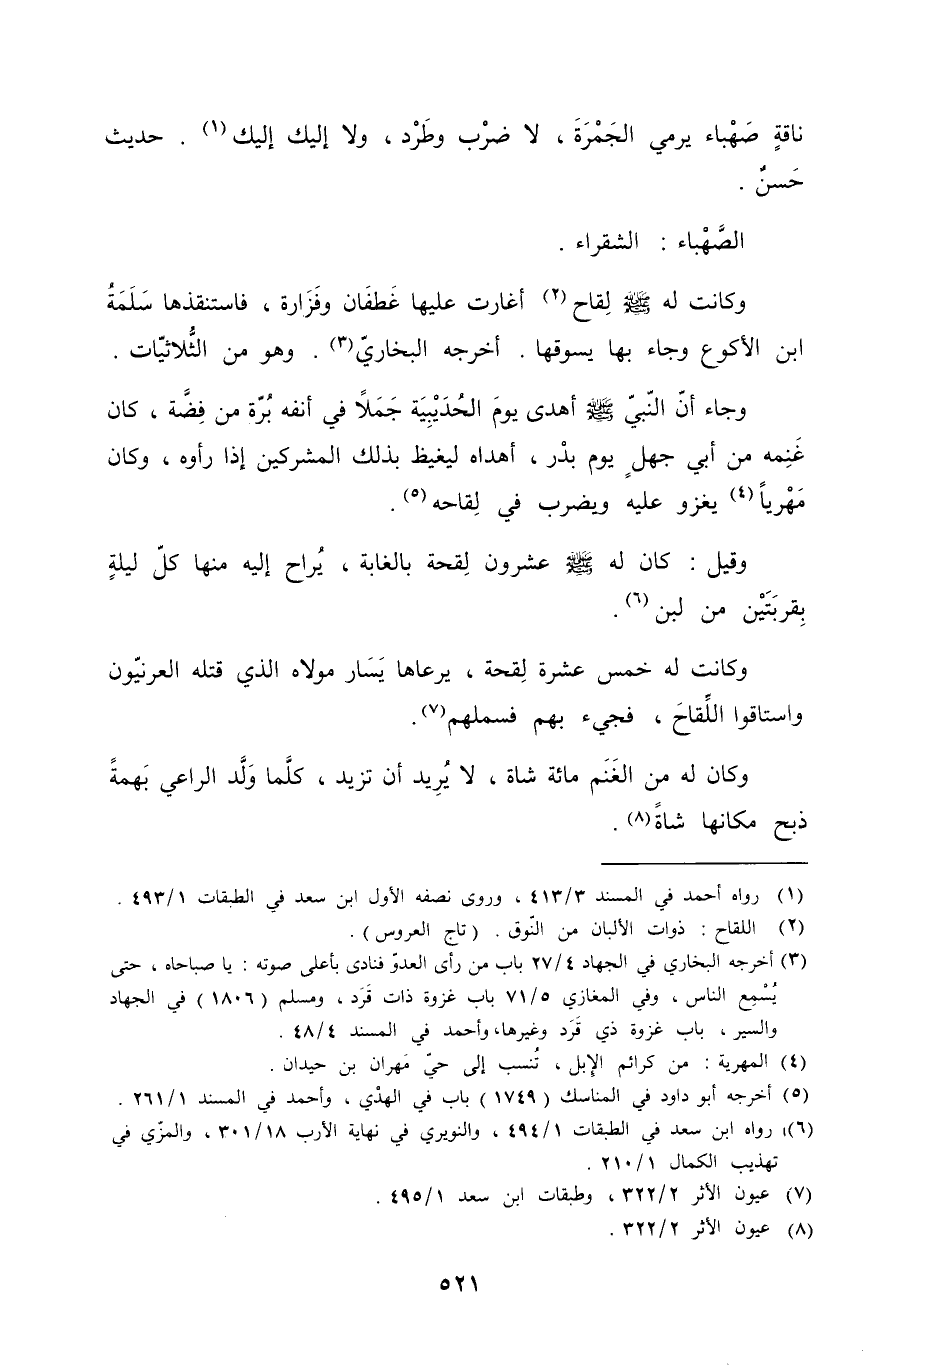 ناقةٍ صَهْباء يرمي الجَمْرَةَ ، لا ضرْب وطَرْد ، ولا إليك إليك(١) . حديث
حَسنٌ .
الصَّهْباء : الشقراء .
وكانت له ﷺ لِقاح(٢) أغارت عليها غَطفَان وفَزَارة ، فاستنقذها سَلَمَةُ
ابن الأكوع وجاء بها يسوقها . أخرجه البخاريّ(٣) . وهو من الثُّلاثيّات .
وجاء أنّ النّبيّ ﷺ أهدى يومَ الحُدَيْبِيَة جَمَلاً في أنفه بُرّة من فِضَّة ، كان
غَنِمه من أبي جهلٍ يوم بدْر ، أهداه ليغيظ بذلك المشركين إذا رأوه ، وكان
مَهْرياً(٤) يغزو عليه ويضرب في لِقاحه(٥) .
وقيل : كان له ﷺ عشرون لِقحة بالغابة ، يُراح إليه منها كلّ ليلةٍ
بِقربَتَيْن من لبن(٦) .
وكانت له خمس عشرة لِقحة ، يرعاها يَسَار مولاه الذي قتله العرنيّون
واستاقوا اللِّقاحَ ، فجيء بهم فسملهم(٧) .
وكان له من الغَنَم مائة شاة ، لا يُرِيد أن تزيد ، كلَّما وَلَّد الراعي بَهمةً
ذبح مكانها شاةً(٨) .
(١) رواه أحمد في المسند ٤١٣/٣ ، وروى نصفه الأول ابن سعد في الطبقات ٤٩٣/١ .
(٢) اللقاح : ذوات الألبان من النّوق . ( تاج العروس ) .
(٣) أخرجه البخاري في الجهاد ٢٧/٤ باب من رأى العدوّ فنادى بأعلى صوته : يا صباحاه ، حتى
يُسْمِع الناس ، وفي المغازي ٧١/٥ باب غزوة ذات قَرَد ، ومسلم ( ١٨٠٦ ) في الجهاد
والسير ، باب غزوة ذي قَرَد وغيرها، وأحمد في المسند ٤٨/٤ .
(٤) المهرية : من كرائم الإبل ، تُنسب إلى حيّ مَهران بن حيدان .
(٥) أخرجه أبو داود في المناسك ( ١٧٤٩ ) باب في الهدْي ، وأحمد في المسند ٢٦١/١ .
(٦) رواه ابن سعد في الطبقات ٤٩٤/١ ، والنويري في نهاية الأرب ٣٠١/١٨ ، والمزّي في
تهذيب الكمال ٢١٠/١ .
(٧) عيون الأثر ٣٢٢/٢ ، وطبقات ابن سعد ٤٩٥/١ .
(٨) عيون الأثر ٣٢٢/٢ .
٥٢١